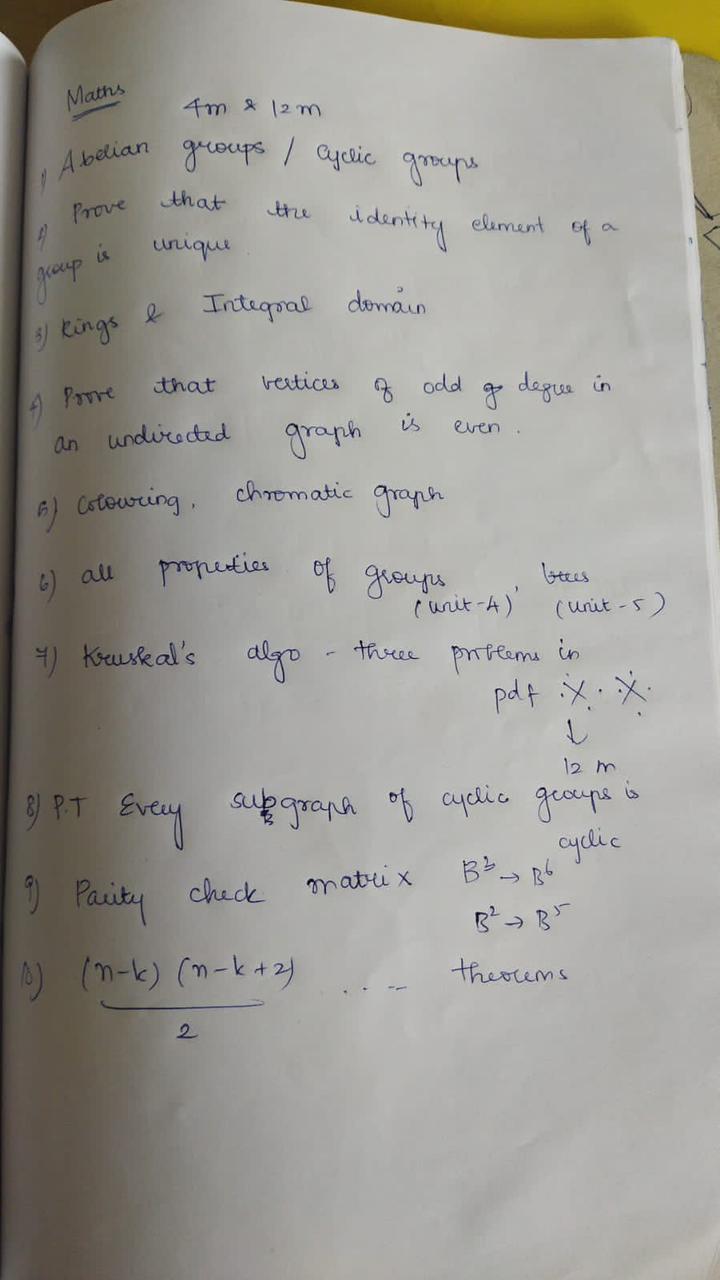 Maths
4m & 12m
1) Abelian groups / Cyclic groups
2) Prove that the identity element of a
group is unique
3) Rings & Integral domain
4) Prove that vertices of odd degree in
an undirected graph is even.
5) Colouring, chromatic graph
6) all properties of groups, trees
(unit-4) (unit-5)
7) Kruskal's algo - three problems in
pdf
↓
12 m
8) P.T Every subgraph of cyclic groups is
cyclic
9) Parity check matrix B³ → B⁶
B² → B⁵
10) (n-k) (n-k+2) .... theorems
2